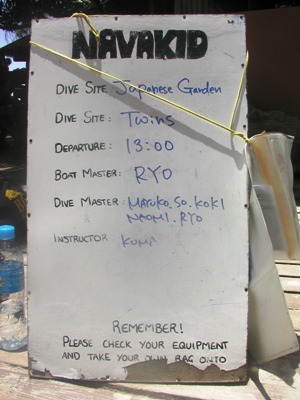 NAVAKID
DIVE SITE: Japanese Garden
DIVE SITE: Twins
DEPARTURE: 13:00
BOAT MASTER: RYO
DIVE MASTER: MAYUKO. SO. KOKI
NAOMI. RYO
INSTRUCTOR: KUMA
REMEMBER!
PLEASE CHECK YOUR EQUIPMENT
AND TAKE YOUR OWN BAG ONTO